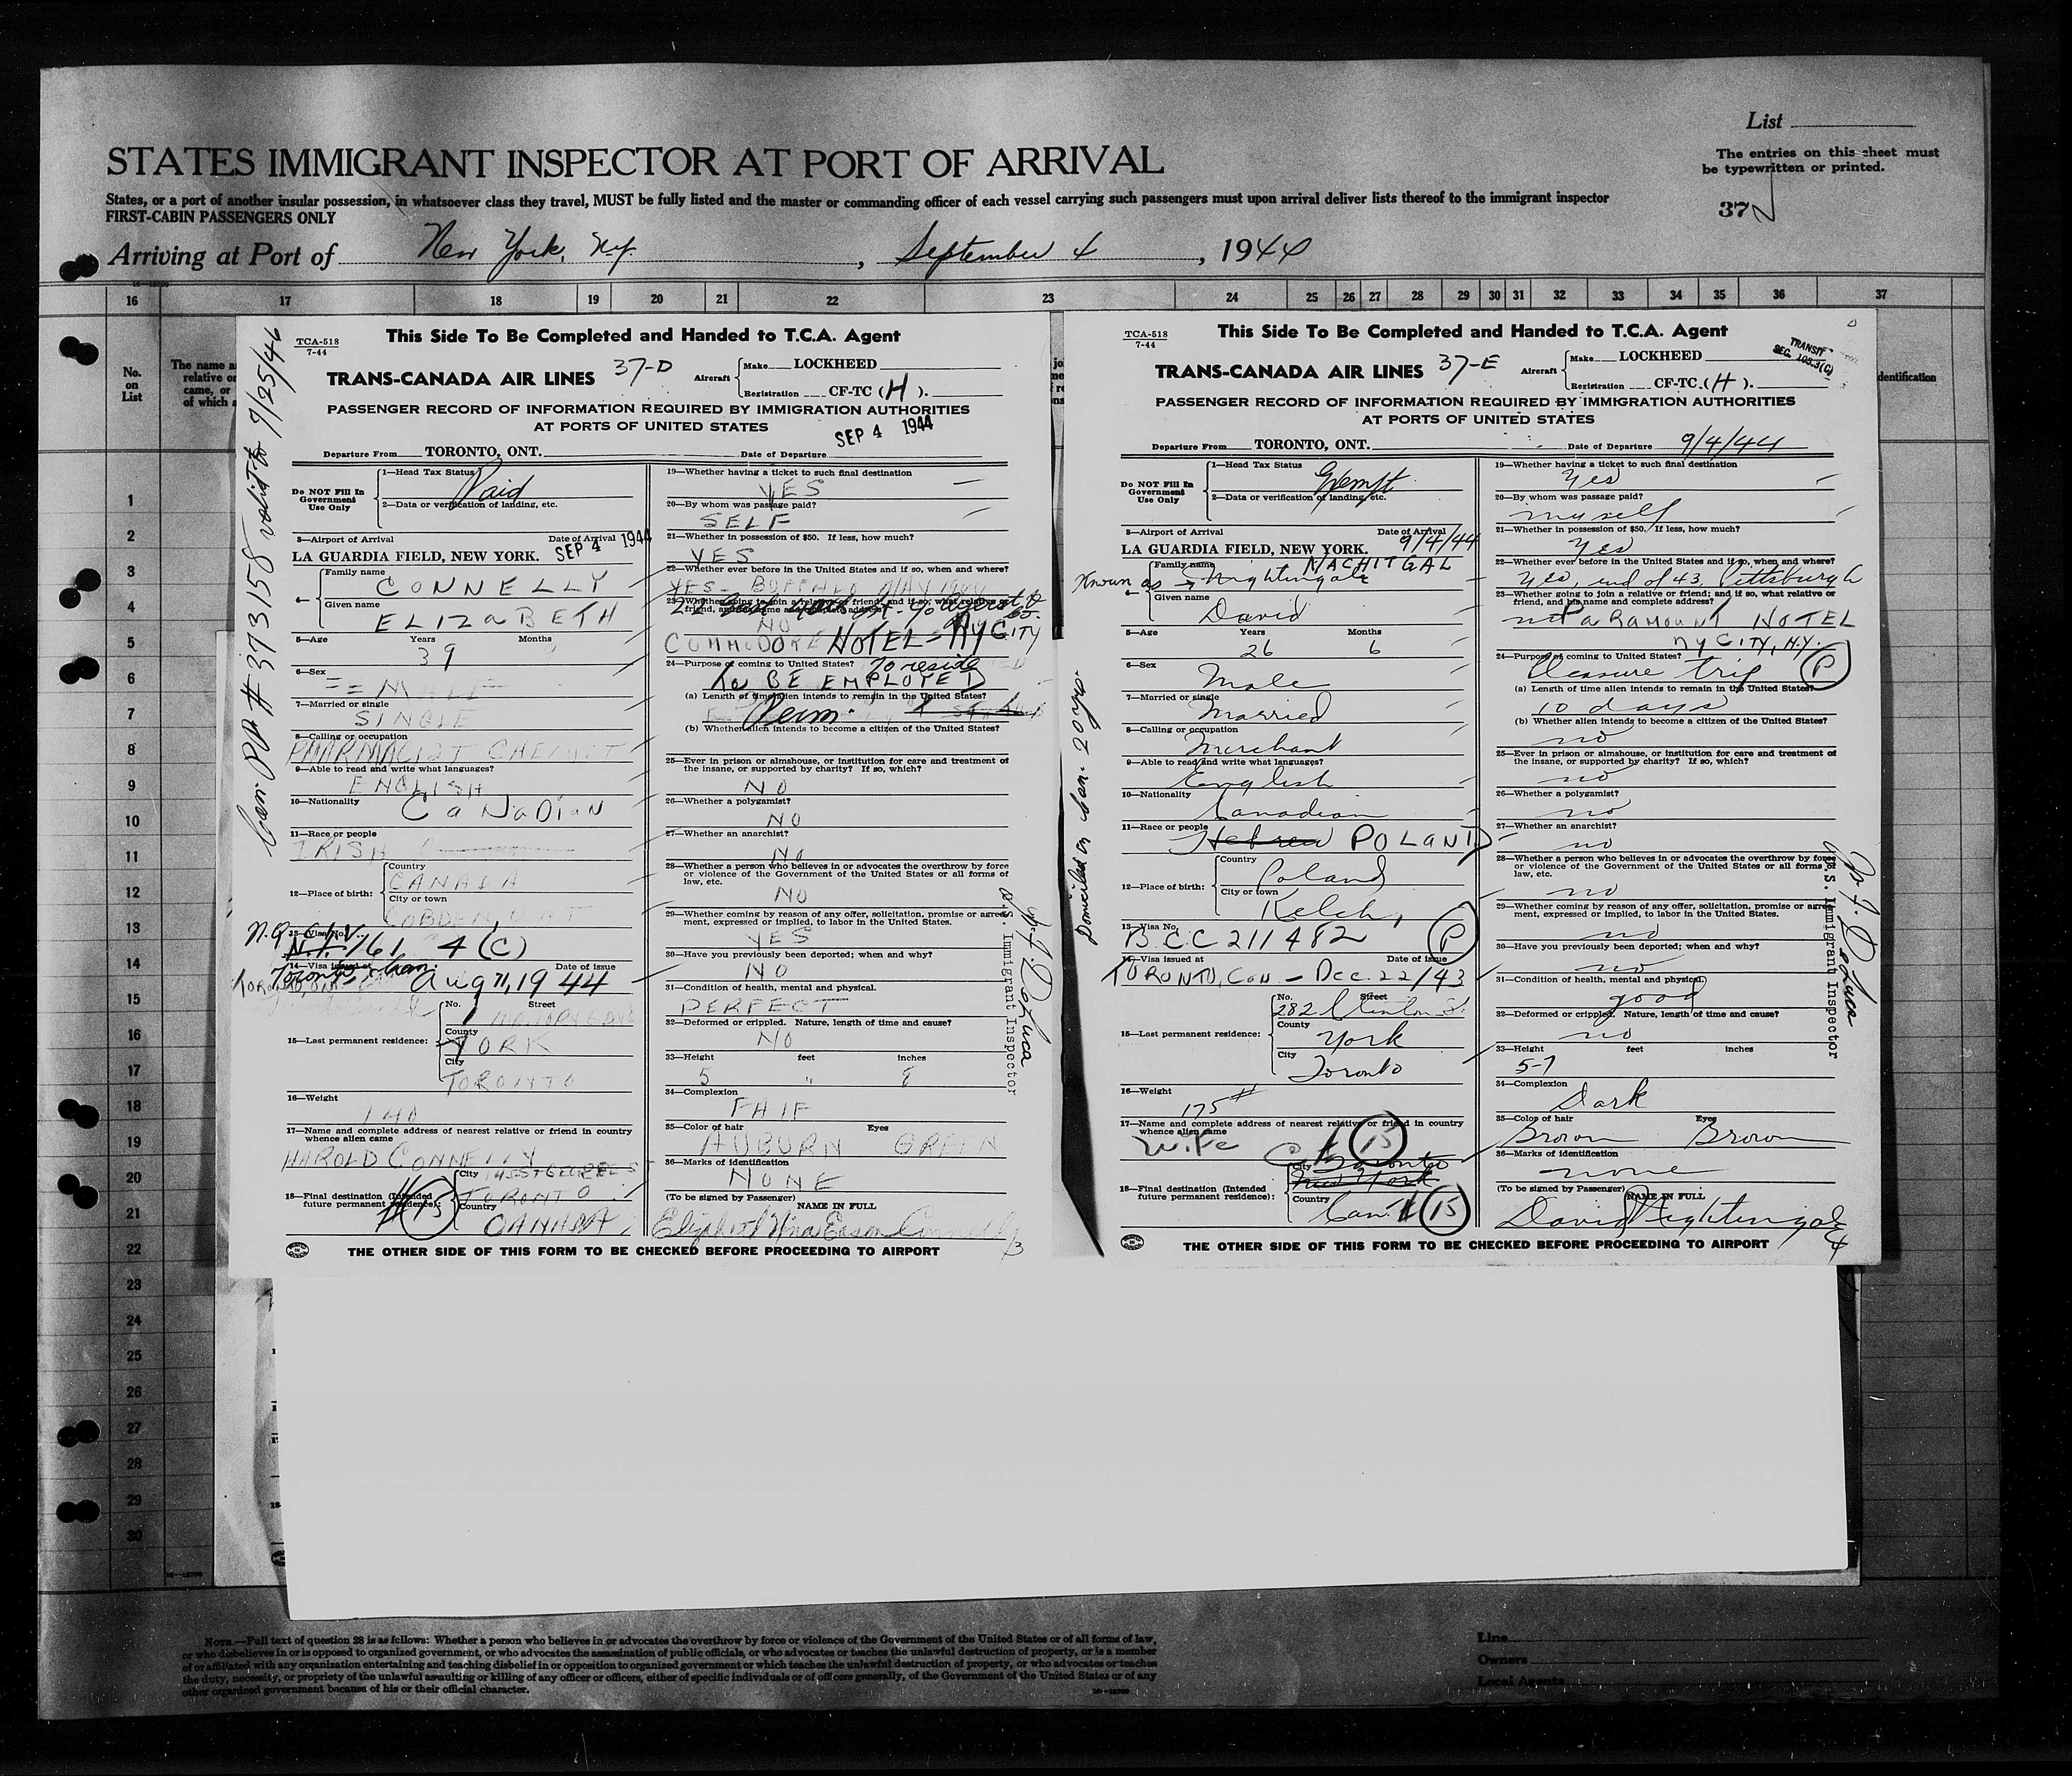 List
STATES IMMIGRANT INSPECTOR AT PORT OF ARRIVAL
The entries on this sheet must
be typewritten or printed.
States, or a port of another insular possession, in whatsoever class they travel, MUST be fully listed and the master or commanding officer of each vessel carrying such passengers must upon arrival deliver lists thereof to the immigrant inspector
FIRST-CABIN PASSENGERS ONLY
37
Arriving at Port of New York, N.Y. , September 4 , 1944
16 17 18 19 20 21 22 23 24 25 26 27 28 29 30 31 32 33 34 35 36 37
No.
on
List
The name a
relative or
came, or
of which a
dentification
1
2
3
4
5
6
7
8
9
10
11
12
13
14
15
16
17
18
19
20
21
22
23
24
25
26
27
28
29
30
Can. PP # 373158 valid to 7/25/46
TCA-518
7-44
This Side To Be Completed and Handed to T.C.A. Agent
TRANS-CANADA AIR LINES 37-D Aircraft
Make LOCKHEED
Registration CF-TC (H).
PASSENGER RECORD OF INFORMATION REQUIRED BY IMMIGRATION AUTHORITIES
AT PORTS OF UNITED STATES
SEP 4 1944
Departure From TORONTO, ONT. Date of Departure
Do NOT Fill In
Government
Use Only
1—Head Tax Status Paid
2—Data or verification of landing, etc.
3—Airport of Arrival Date of Arrival
LA GUARDIA FIELD, NEW YORK. SEP 4 1944
4— Family name
CONNELLY
Given name
ELIZABETH
5—Age Years Months
39
6—Sex
FEMALE
7—Married or single
SINGLE
8—Calling or occupation
PHARMACIST CHEMIST
9—Able to read and write what languages?
ENGLISH
10—Nationality
CANADIAN
11—Race or people
IRISH
12—Place of birth:
Country
CANADA
City or town
COBDEN ONT
13—Visa No.
N.Q. 761 4(C)
14—Visa issued at Date of issue
Toronto, Can. Aug 7, 1944
15—Last permanent residence:
No. Street
County
YORK
City
TORONTO
16—Weight
140
17—Name and complete address of nearest relative or friend in country
whence alien came
HAROLD CONNELLY
18—Final destination (Intended
future permanent residence):
City
TORONTO
Country
CANADA
(15)
19—Whether having a ticket to such final destination
YES
20—By whom was passage paid?
SELF
21—Whether in possession of $50. If less, how much?
YES
22—Whether ever before in the United States and if so, when and where?
YES - BUFFALO
23—Whether going to join a relative or friend; and if so, what relative or
friend, and his name and complete address?
NO
COMMODORE HOTEL - NY CITY
24—Purpose of coming to United States? To reside
to BE EMPLOYED
(a) Length of time alien intends to remain in the United States?
Perm.
(b) Whether alien intends to become a citizen of the United States?
25—Ever in prison or almshouse, or institution for care and treatment of
the insane, or supported by charity? If so, which?
NO
26—Whether a polygamist?
NO
27—Whether an anarchist?
NO
28—Whether a person who believes in or advocates the overthrow by force
or violence of the Government of the United States or all forms of
law, etc.
NO
29—Whether coming by reason of any offer, solicitation, promise or agree-
ment, expressed or implied, to labor in the United States.
YES
30—Have you previously been deported; when and why?
NO
31—Condition of health, mental and physical.
PERFECT
32—Deformed or crippled. Nature, length of time and cause?
NO
33—Height feet inches
5 " 8
34—Complexion
FAIR
35—Color of hair Eyes
AUBURN GREEN
36—Marks of identification
NONE
(To be signed by Passenger) NAME IN FULL
Elizabeth Nina Eason Connelly
3
U.S. Immigrant Inspector
DeLuca
THE OTHER SIDE OF THIS FORM TO BE CHECKED BEFORE PROCEEDING TO AIRPORT
TCA-518
7-44
This Side To Be Completed and Handed to T.C.A. Agent
TRANS-CANADA AIR LINES 37-E Aircraft
Make LOCKHEED
Registration CF-TC (H).
TRANSIT
SEC. 105.3(G)
PASSENGER RECORD OF INFORMATION REQUIRED BY IMMIGRATION AUTHORITIES
AT PORTS OF UNITED STATES
Departure From TORONTO, ONT. Date of Departure 9/4/44
Do NOT Fill In
Government
Use Only
1—Head Tax Status Exempt
2—Data or verification of landing, etc.
3—Airport of Arrival Date of Arrival
LA GUARDIA FIELD, NEW YORK. 9/4/44
4— Family name NACHITGAL
Known as → Nightingale
Given name
David
5—Age Years Months
26 6
6—Sex
Male
7—Married or single
Married
8—Calling or occupation
Merchant
9—Able to read and write what languages?
English
10—Nationality
Canadian
11—Race or people
Hebrew POLAND
12—Place of birth:
Country
Poland
City or town
Kelch,
13—Visa No.
B.C.C 211482 (P)
14—Visa issued at Date of issue
TORONTO, Can - Dec. 22/43
15—Last permanent residence:
No. Street
282 Clinton St
County
York
City
Toronto
16—Weight
175#
17—Name and complete address of nearest relative or friend in country
whence alien came
Wife (15)
18—Final destination (Intended
future permanent residence):
City Toronto
New York
Country
Can. (15)
Domiciled in Can. 20 yrs.
19—Whether having a ticket to such final destination
Yes
20—By whom was passage paid?
myself
21—Whether in possession of $50. If less, how much?
Yes
22—Whether ever before in the United States and if so, when and where?
Yes, end of 43, Pittsburgh
23—Whether going to join a relative or friend; and if so, what relative or
friend, and his name and complete address?
PARAMOUNT HOTEL
NY CITY, N.Y.
24—Purpose of coming to United States?
Pleasure trip (P)
(a) Length of time alien intends to remain in the United States?
10 days
(b) Whether alien intends to become a citizen of the United States?
no
25—Ever in prison or almshouse, or institution for care and treatment of
the insane, or supported by charity? If so, which?
no
26—Whether a polygamist?
no
27—Whether an anarchist?
no
28—Whether a person who believes in or advocates the overthrow by force
or violence of the Government of the United States or all forms of
law, etc.
no
29—Whether coming by reason of any offer, solicitation, promise or agree-
ment, expressed or implied, to labor in the United States.
no
30—Have you previously been deported; when and why?
no
31—Condition of health, mental and physical.
good
32—Deformed or crippled. Nature, length of time and cause?
no
33—Height feet inches
5-7
34—Complexion
Dark
35—Color of hair Eyes
Brown Brown
36—Marks of identification
none
(To be signed by Passenger) NAME IN FULL
David Nightingale
4
U.S. Immigrant Inspector
DeLuca
THE OTHER SIDE OF THIS FORM TO BE CHECKED BEFORE PROCEEDING TO AIRPORT
NOTE.—Full text of question 28 is as follows: Whether a person who believes in or advocates the overthrow by force or violence of the Government of the United States or of all forms of law,
or who disbelieves in or is opposed to organized government, or who advocates the assassination of public officials, or who advocates or teaches the unlawful destruction of property, or is a member
of or affiliated with any organization entertaining and teaching disbelief in or opposition to organized government or which teaches the unlawful destruction of property, or who advocates or teaches
the duty, necessity, or propriety of the unlawful assaulting or killing of any officer or officers, either of specific individuals or of officers generally, of the Government of the United States or of any
other organized government because of his or their official character.
Line
Owners
Local Agents